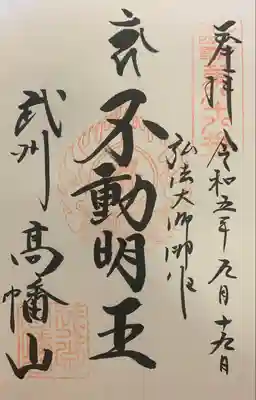 奉拝 令和五年 月 日
弘法大師御作
不動明王
武州 高幡山